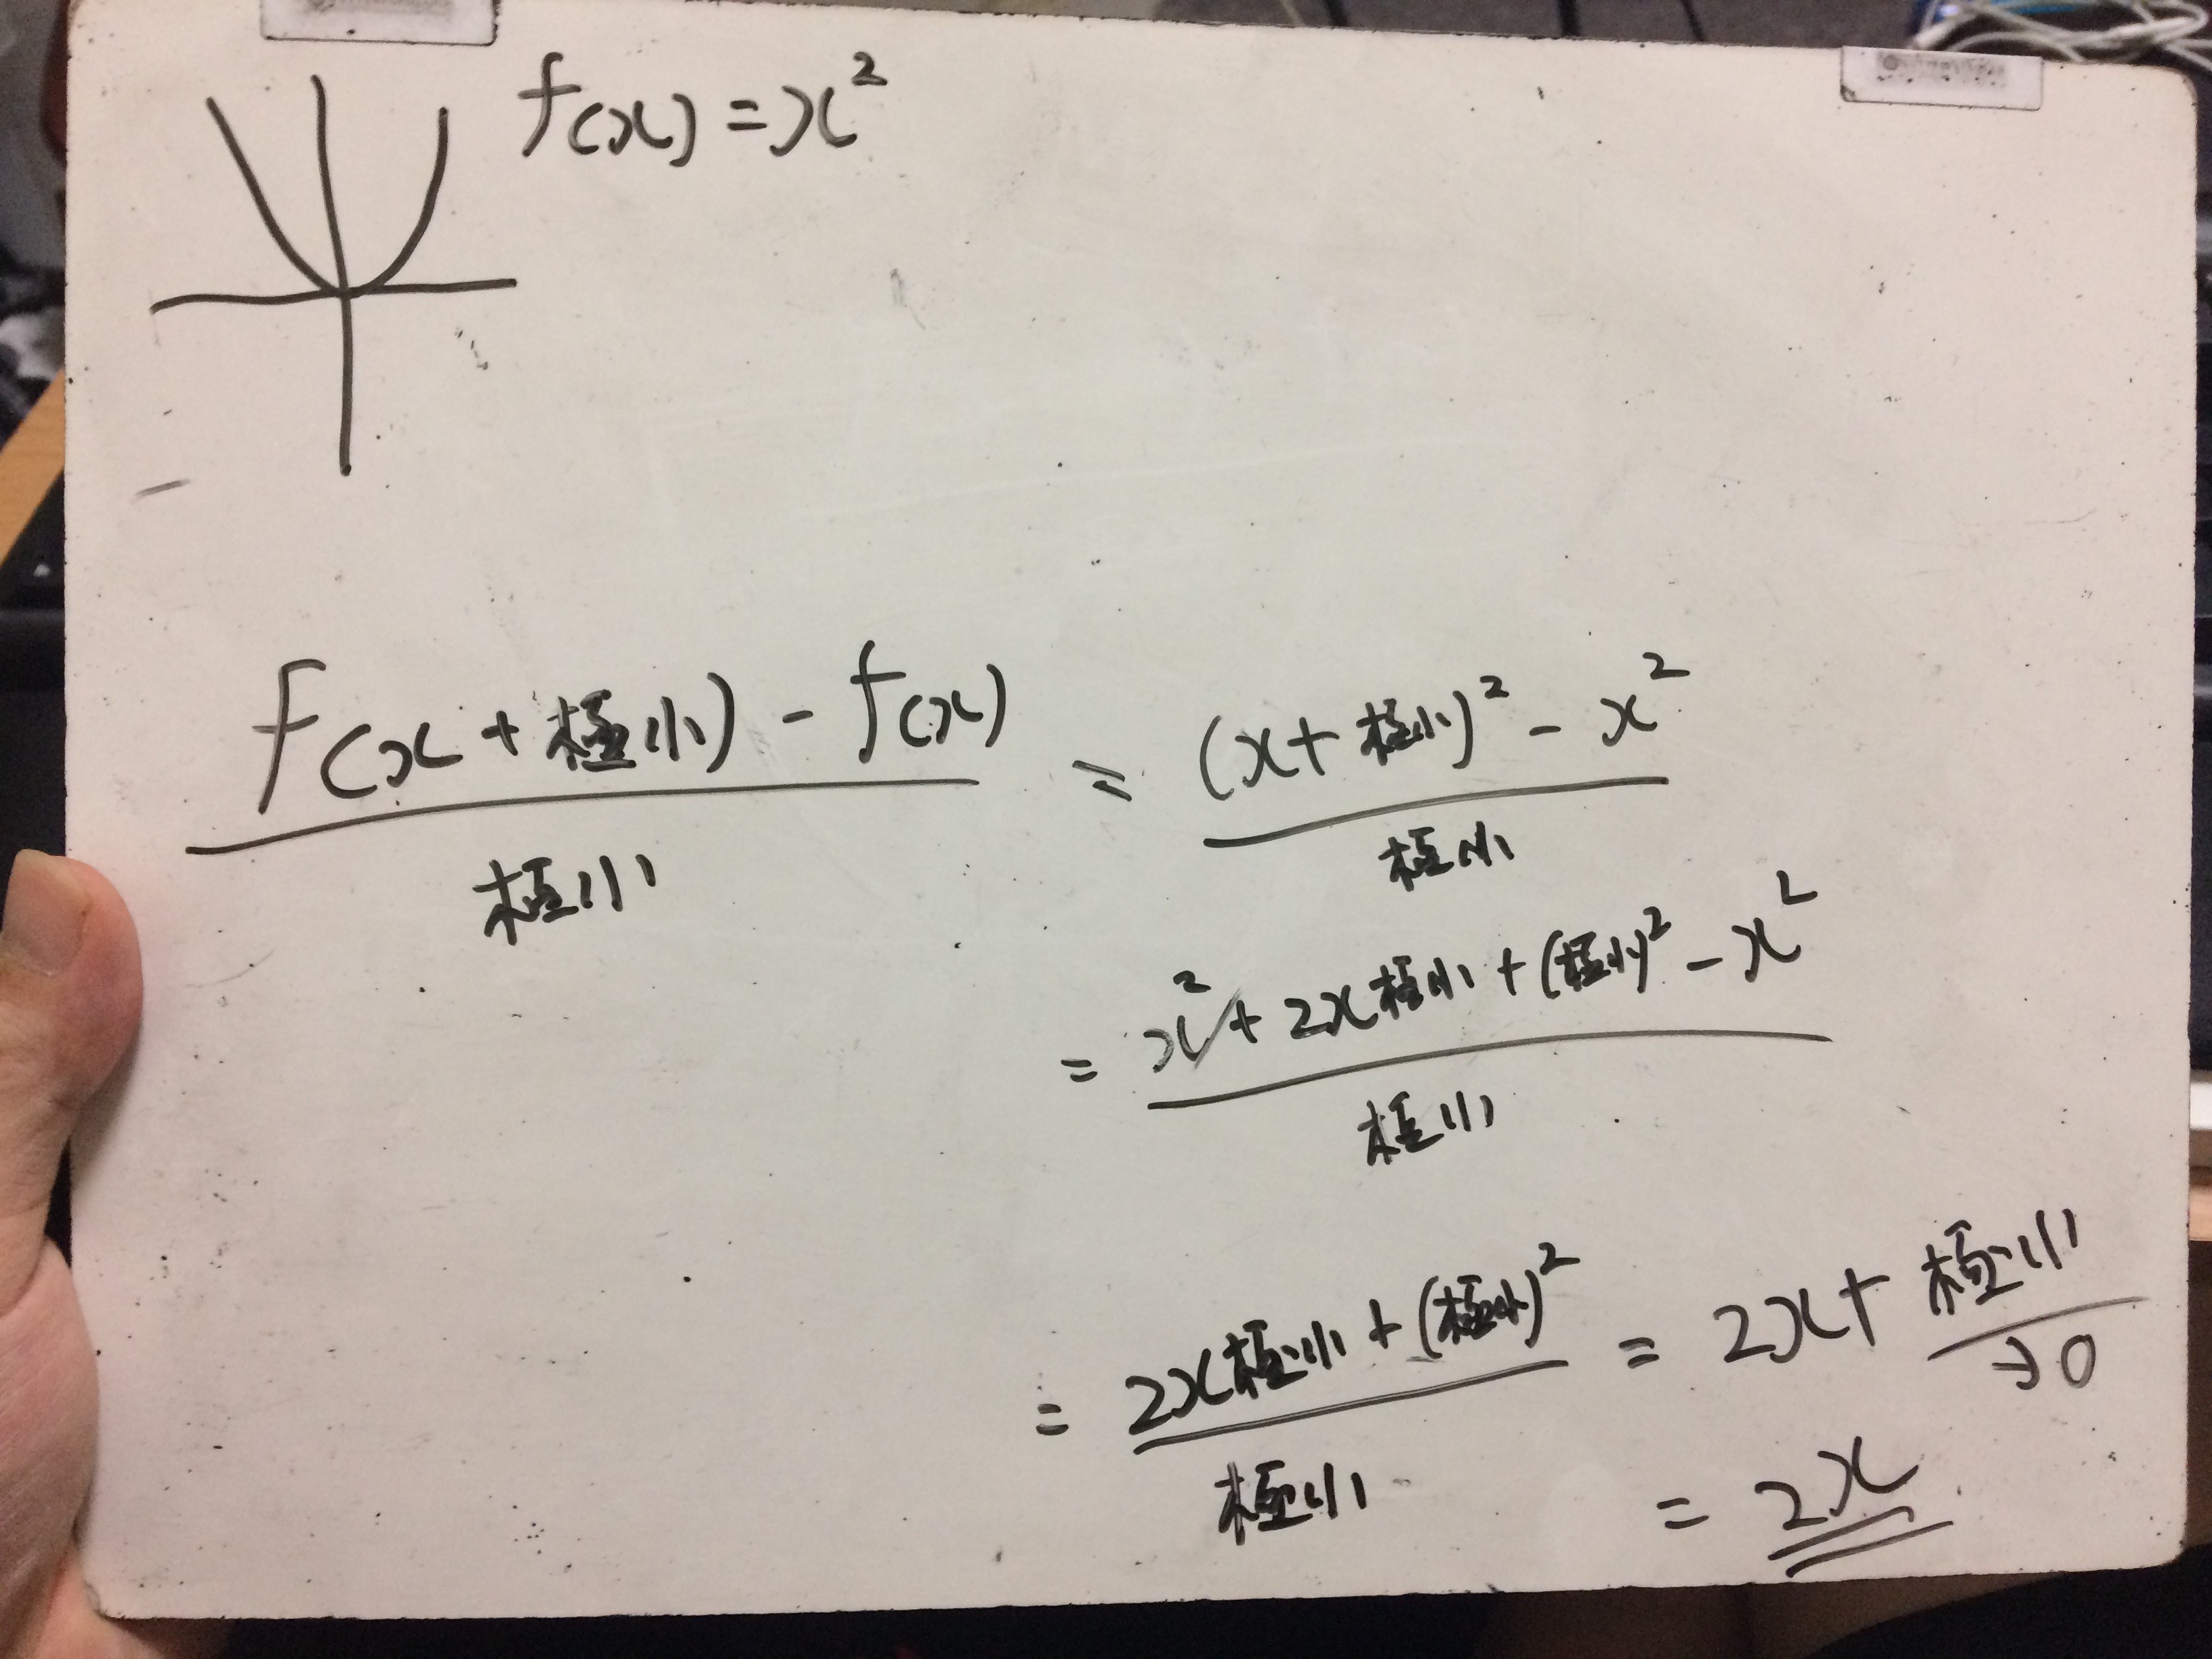 f(x)=x²
f(x+極小)-f(x)
極小
= (x+極小)²-x²
極小
= x²+2x極小+(極小)²-x²
極小
= 2x極小+(極小)²
極小
= 2x+極小
→0
= 2x